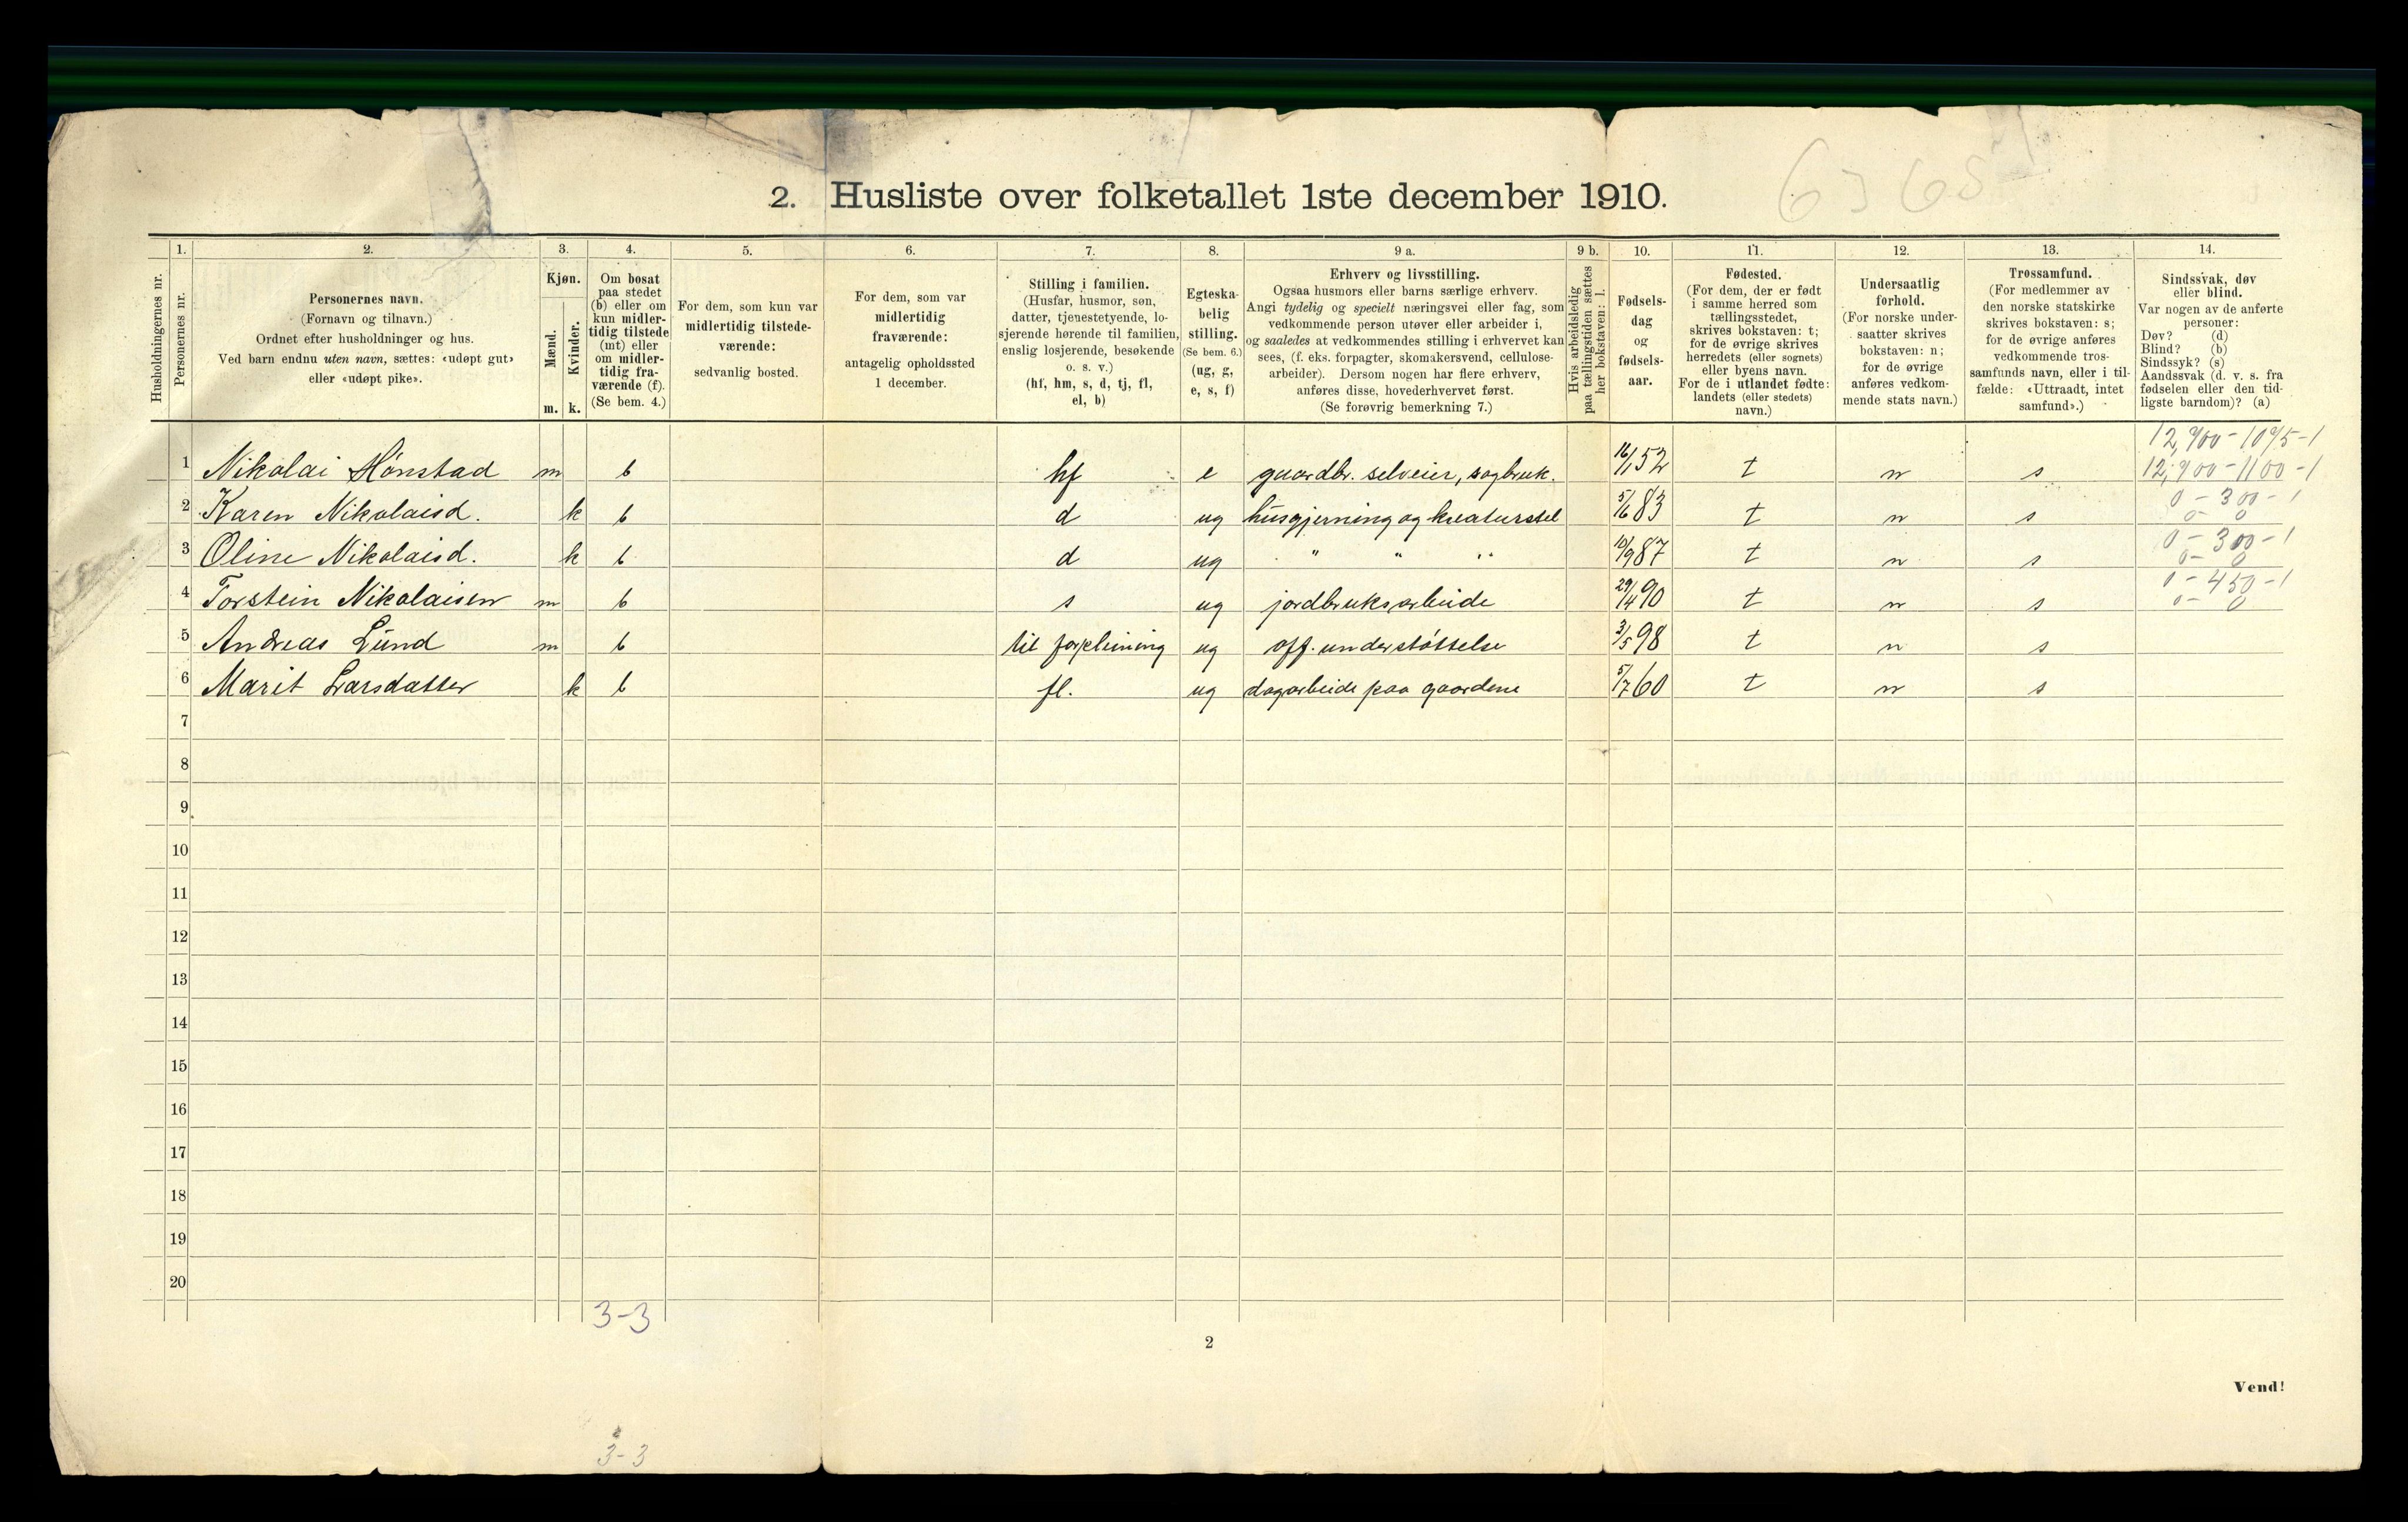 2. Husliste over folketallet 1ste december 1910.
Husholdningernes nr.
1.
Personernes nr.
2.
Personernes navn.
(Fornavn og tilnavn.)
Ordnet efter husholdninger og hus.
Ved barn endnu uten navn, sættes: «udøpt gut»
eller «udøpt pike».
3.
Kjøn.
Mænd.
Kvinder.
m. k.
4.
Om bosat
paa stedet
(b) eller om
kun midler-
tidig tilstede
(mt) eller
om midler-
tidig fra-
værende (f).
(Se bem. 4.)
5.
For dem, som kun var
midlertidig tilstede-
værende:
sedvanlig bosted.
6.
For dem, som var
midlertidig
fraværende:
antagelig opholdssted
1 december.
7.
Stilling i familien.
(Husfar, husmor, søn,
datter, tjenestetyende, lo-
sjerende hørende til familien,
enslig losjerende, besøkende
o. s. v.)
(hf, hm, s, d, tj, fl,
el, b)
8.
Egteska-
belig
stilling.
(Se bem. 6.)
(ug, g,
e, s, f)
9 a.
Erhverv og livsstilling.
Ogsaa husmors eller barns særlige erhverv.
Angi tydelig og specielt næringsvei eller fag, som
vedkommende person utøver eller arbeider i,
og saaledes at vedkommendes stilling i erhvervet kan
sees, (f. eks. forpagter, skomakersvend, cellulose-
arbeider). Dersom nogen har flere erhverv,
anføres disse, hovederhvervet først.
(Se forøvrig bemerkning 7.)
9 b.
Hvis arbeidsledig
paa tællingstiden sættes
her bokstaven: l.
10.
Fødsels-
dag
og
fødsels-
aar.
11.
Fødested.
(For dem, der er født
i samme herred som
tællingsstedet,
skrives bokstaven: t;
for de øvrige skrives
herredets (eller sognets)
eller byens navn.
For de i utlandet fødte:
landets (eller stedets)
navn.)
12.
Undersaatlig
forhold.
(For norske under-
saatter skrives
bokstaven: n;
for de øvrige
anføres vedkom-
mende stats navn.)
13.
Trossamfund.
(For medlemmer av
den norske statskirke
skrives bokstaven: s;
for de øvrige anføres
vedkommende tros-
samfunds navn, eller i til-
fælde: «Uttraadt, intet
samfund».)
14.
Sindssvak, døv
eller blind.
Var nogen av de anførte
personer:
Døv? (d)
Blind? (b)
Sindssyk? (s)
Aandssvak (d. v. s. fra
fødselen eller den tid-
ligste barndom)? (a)
1 Nikolai Hönstad m b hf e gaardbr. selveier, sagbruk. 16/1 52 t n s
2 Karen Nikolaisd. k b d ug husgjerning og kreaturstel 5/6 83 t n s 0 - 300 - 1
0 - 0
3 Oline Nikolaisd. k b d ug " " " 10/9 87 t n s 0 - 300 - 1
0 - 0
4 Torstein Nikolaisen m b s ug jordbruksarbeide 29/4 90 t n s 0 - 450 - 1
0 - 0
5 Andreas Lund m b til forpleining ug off. understöttelse 3/5 98 t n s
6 Marit Larsdatter k b fl. ug dagarbeide paa gaardene 5/7 60 t n s
7
8
9
10
11
12
13
14
15
16
17
18
19
20
3-3
2
Vend!
3-3